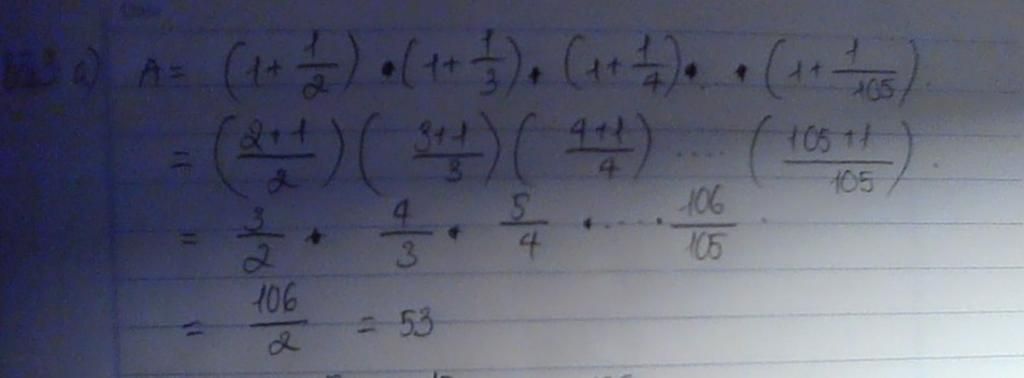 a) A = (1 + 1/2) • (1 + 1/3) • (1 + 1/4) • • (1 + 1/105).
= ((2+1)/2) ((3+1)/3) ((4+1)/4) ..... ((105+1)/105).
= 3/2 • 4/3 • 5/4 • ..... 106/105
= 106/2 = 53